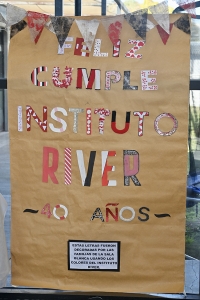 FELIZ
CUMPLE
INSTITUTO
RIVER
40 AÑOS
ESTAS LETRAS FUERON
DECORADAS POR LAS
FAMILIAS DE LA SALA
BLANCA USANDO LOS
COLORES DEL INSTITUTO
RIVER.